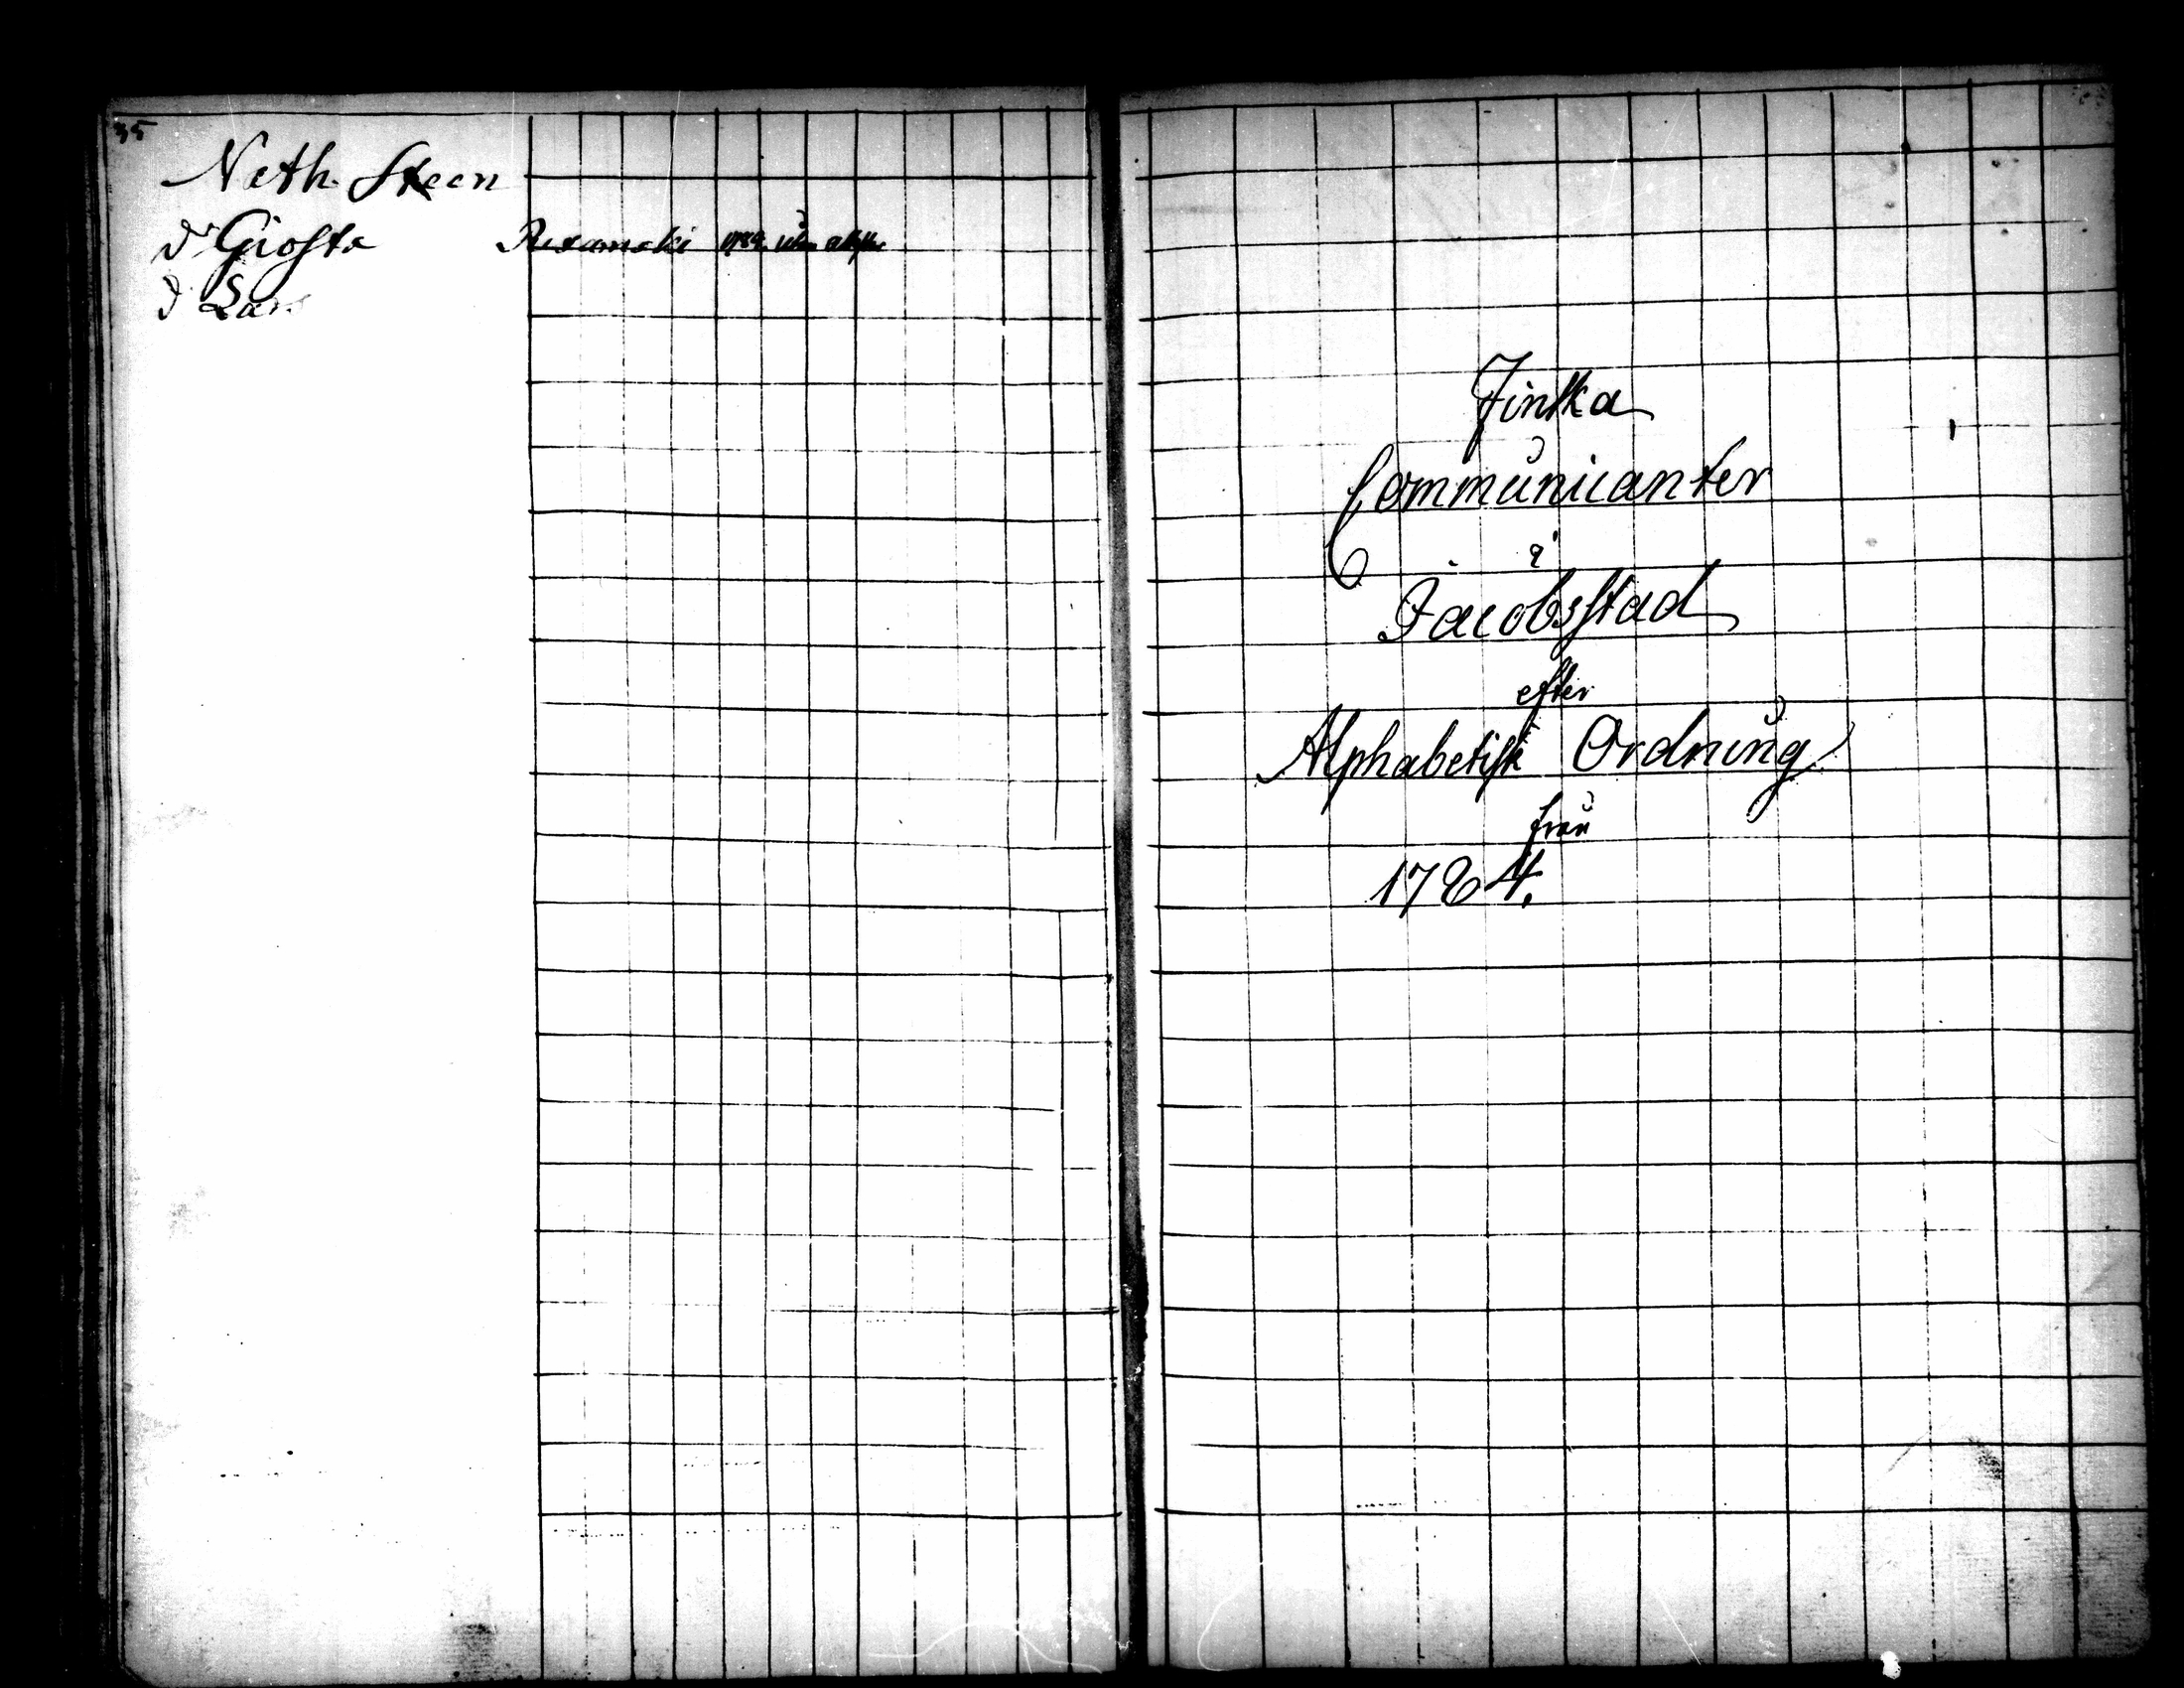 35
Neth. Steen
Dr Giösta
D Lars
Finska
Communicanter
i
Jacobsstad
efter
Alphabetisk Ordning
från
1784.